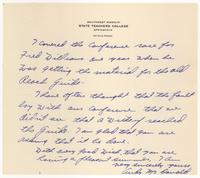 SOUTHWEST MISSOURI
STATE TEACHERS COLLEGE
SPRINGFIELD
I covered the Conference race for
Fred Williams one year when he
was getting the material for the old
Reach Guide.
I have often thought that the fault
lay with our Conference that we
didn't see that a Directory reached
the Guide. I am glad that you are
asking that it be done.
With every good wish that you are
having a pleasant summer, I am
very sincerely yours
McDonald